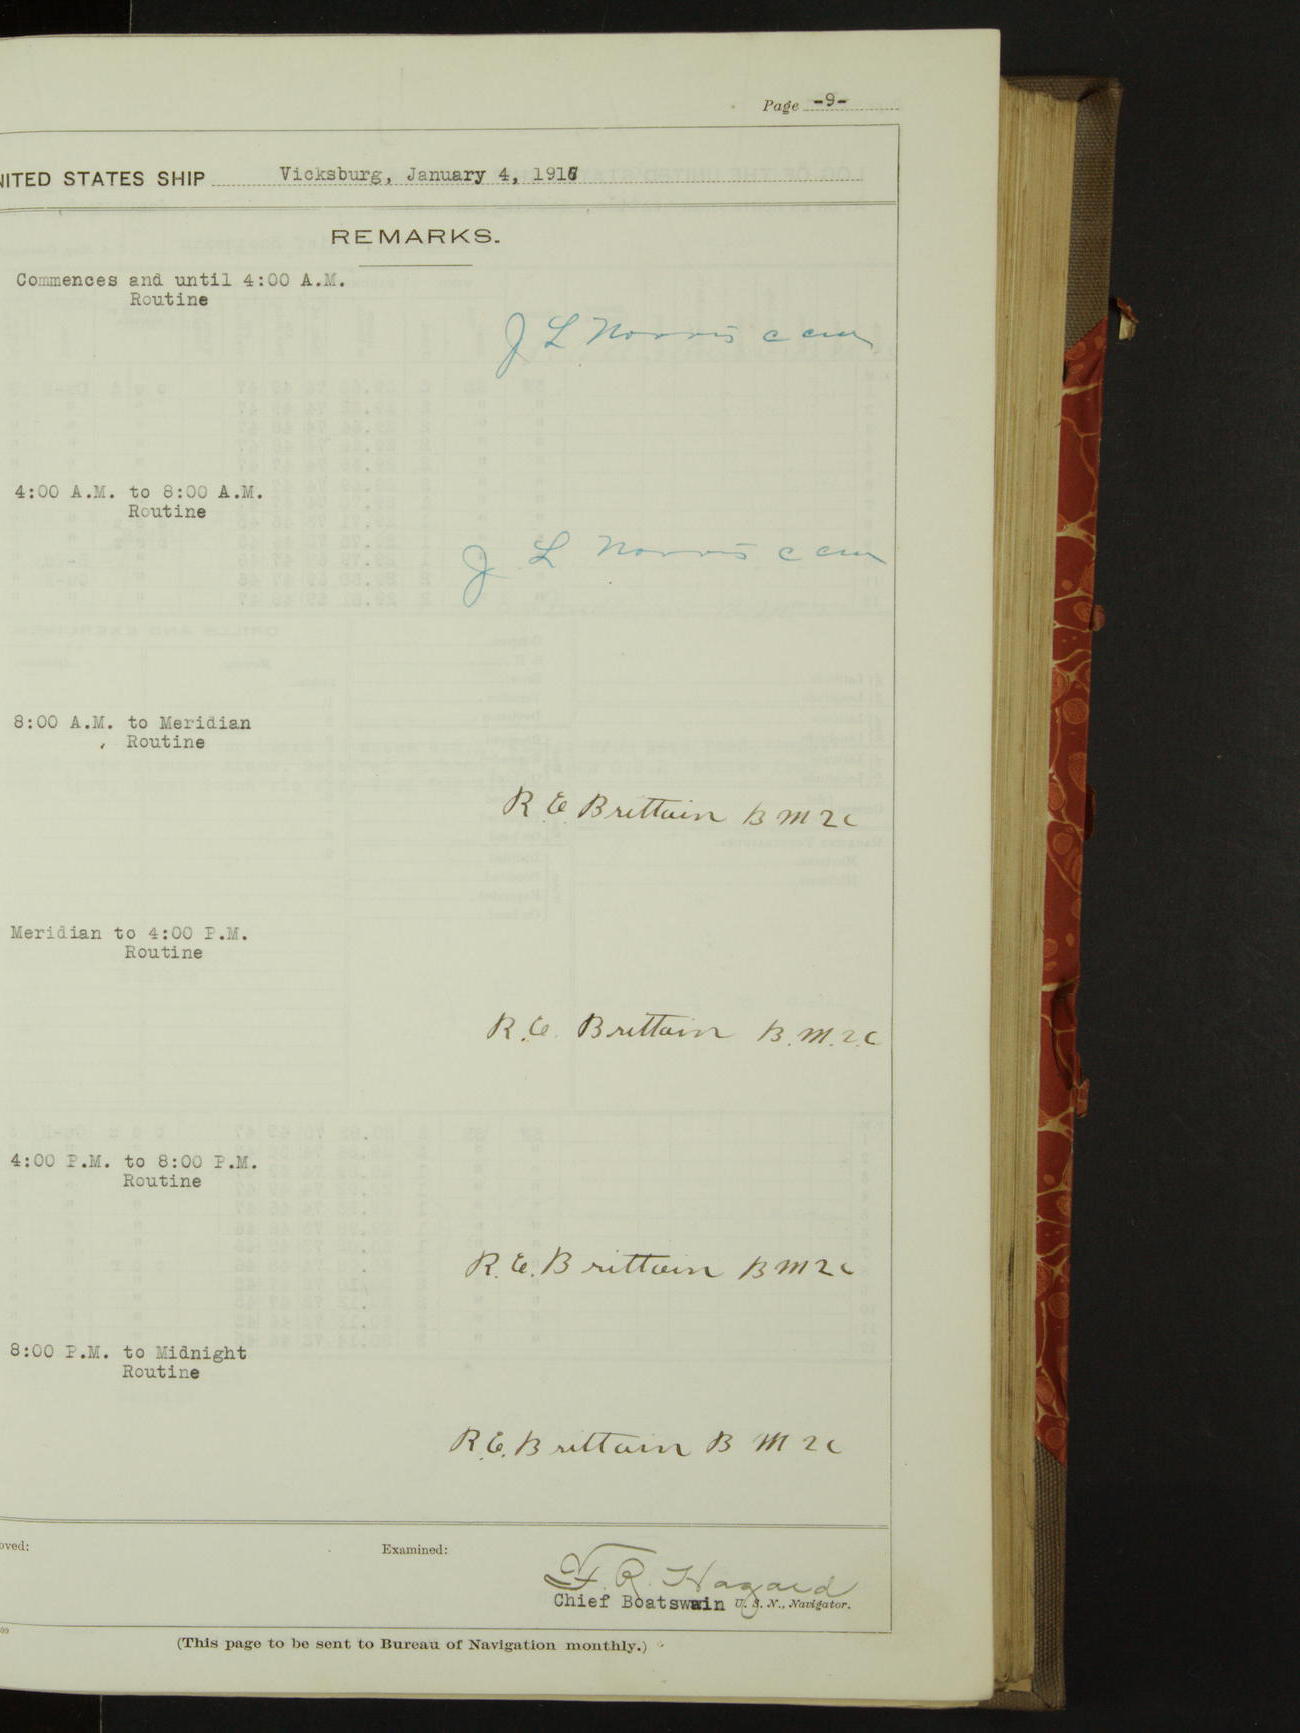 Page -9-
NITED STATES SHIP Vicksburg, January 4, 1916
REMARKS.
Commences and until 4:00 A.M.
Routine
J L Norris C C M
4:00 A.M. to 8:00 A.M.
Routine
J L Norris C C M
8:00 A.M. to Meridian
Routine
R. E. Brittain B M 2 C
Meridian to 4:00 P.M.
Routine
R. E. Brittain B. M. 2. C
4:00 P.M. to 8:00 P.M.
Routine
R. E. Brittain B M 2 C
8:00 P.M. to Midnight
Routine
R. E. Brittain B M 2 C
oved:
Examined:
F. R. Hazard
Chief Boatswain U. S. N., Navigator.
(This page to be sent to Bureau of Navigation monthly.)